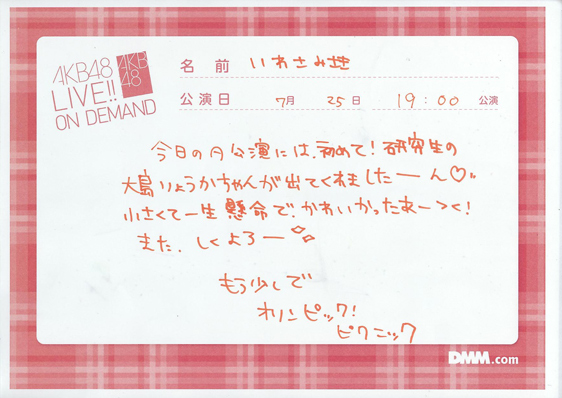 AKB48
LIVE!!
ON DEMAND
AKB
48
名 前 いわさみさき
公演日 7月 25日 19:00 公演
今日の公演には、初めて!研究生の
大島りょうかちゃんが出てくれましたーん♡
小さくて一生懸命で、かわいかったわーっく!
また、しくよろー
もう少しで
オリンピック!
ピクニック
DMM.com